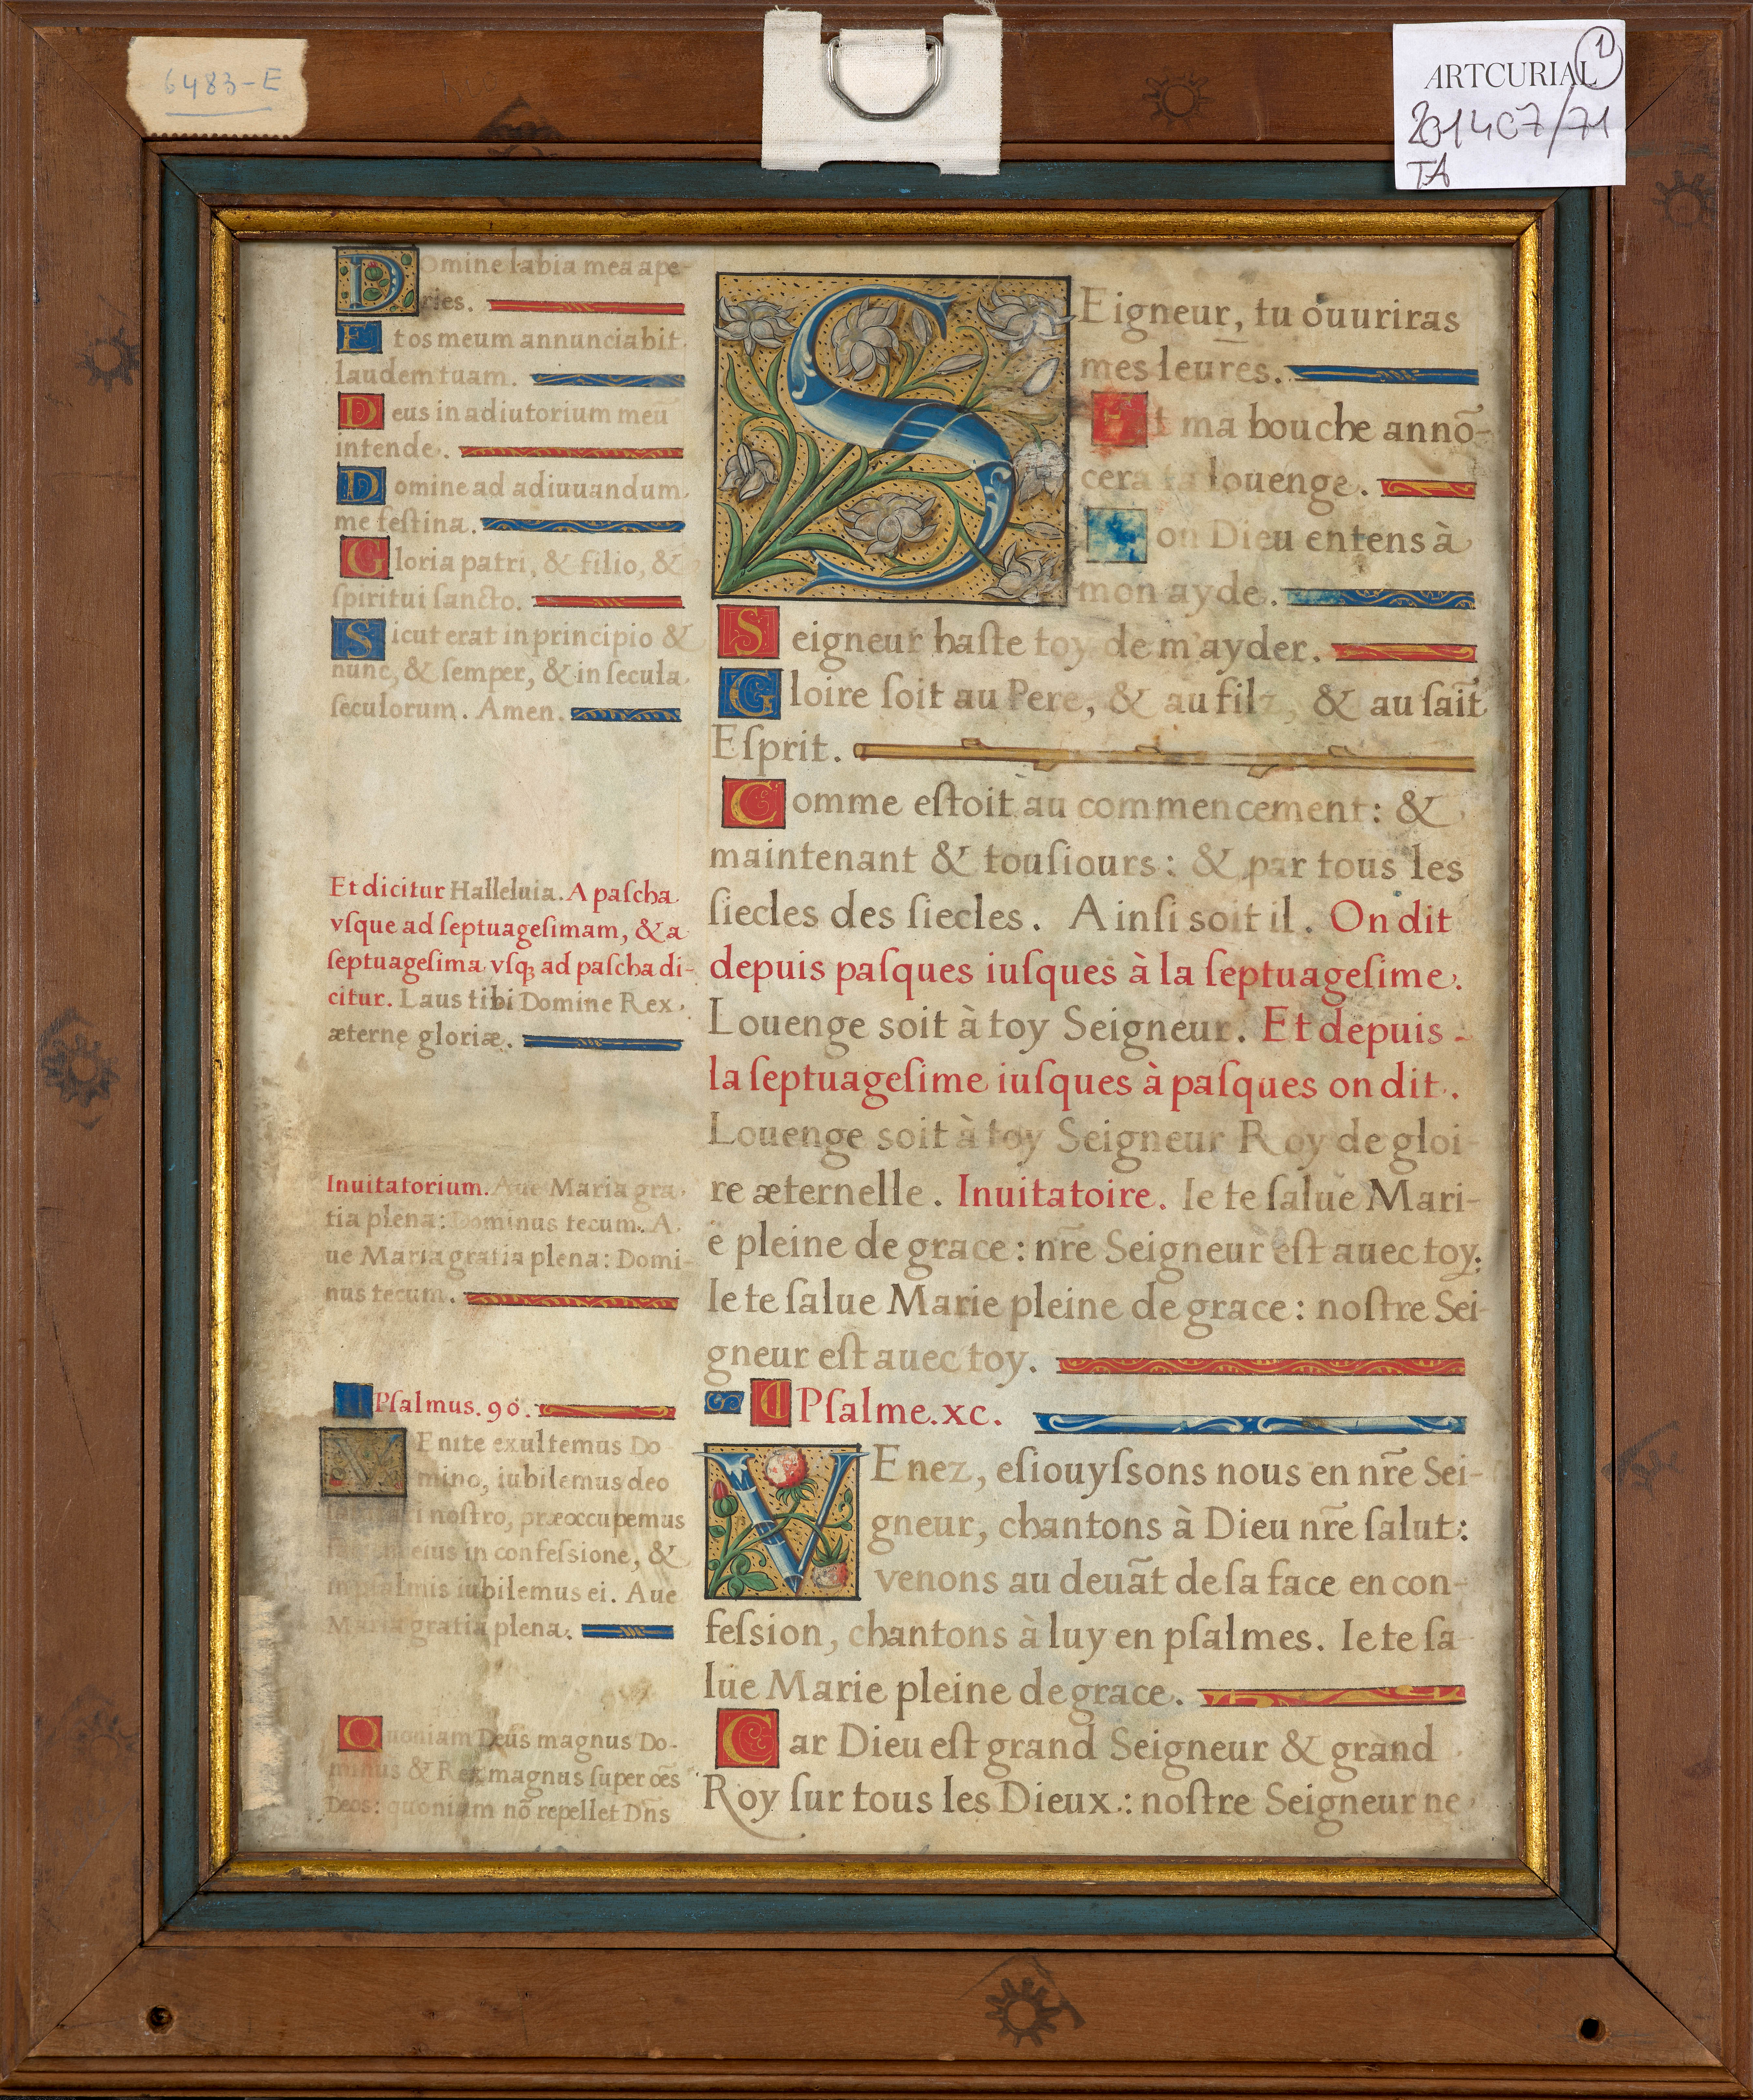 6483-E
ARTCURIAL 1
201407/71
TA
Domine labia mea ape-
ries.
Et os meum annunciabit
laudem tuam.
Deus in adiutorium meū
intende.
Domine ad adiuuandum
me feſtina.
Gloria patri, & filio, &
ſpiritui ſancto.
Sicut erat in principio &
nunc, & ſemper, & in ſecula
ſeculorum. Amen.
Et dicitur Halleluia. A paſcha
vſque ad ſeptuageſimam, & a
ſeptuageſima vſqꝫ ad paſcha di-
citur. Laus tibi Domine Rex
æterne gloriæ.
Inuitatorium. Aue Maria gra
tia plena: Dominus tecum. A
ue Maria gratia plena: Domi-
nus tecum.
Pſalmus. 90.
VEnite exultemus Do-
mino, iubilemus deo
noſtro, præoccupemus
eius in confeſsione, &
in pſalmis iubilemus ei. Aue
Maria gratia plena.
Quoniam Deus magnus Do-
minus & Rex magnus ſuper oēs
Deos: quoniam nō repellet Dñs
SEigneur, tu ouuriras
mes leures.
Et ma bouche annō-
cera ta louenge.
on Dieu entens à
mon ayde.
Seigneur haſte toy de m'ayder.
Gloire ſoit au Pere, & au filz, & au ſaīt
Eſprit.
Comme eſtoit au commencement: &
maintenant & touſiours: & par tous les
ſiecles des ſiecles. Ainſi soit il. On dit
depuis paſques iuſques à la ſeptuageſime.
Louenge soit à toy Seigneur. Et depuis -
la ſeptuageſime iuſques à paſques on dit.
Louenge soit à toy Seigneur Roy de gloi-
re æternelle. Inuitatoire. Ie te ſalue Mari-
e pleine de grace: nr̃e Seigneur eſt auec toy:
Ie te ſalue Marie pleine de grace: noſtre Sei-
gneur eſt auec toy.
Pſalme. xc.
VEnez, eſiouyſsons nous en nr̃e Sei-
gneur, chantons à Dieu nr̃e ſalut:
venons au deuāt de ſa face en con-
feſsion, chantons à luy en pſalmes. Ie te ſa-
lüe Marie pleine de grace.
Car Dieu eſt grand Seigneur & grand
Roy ſur tous les Dieux: noſtre Seigneur ne